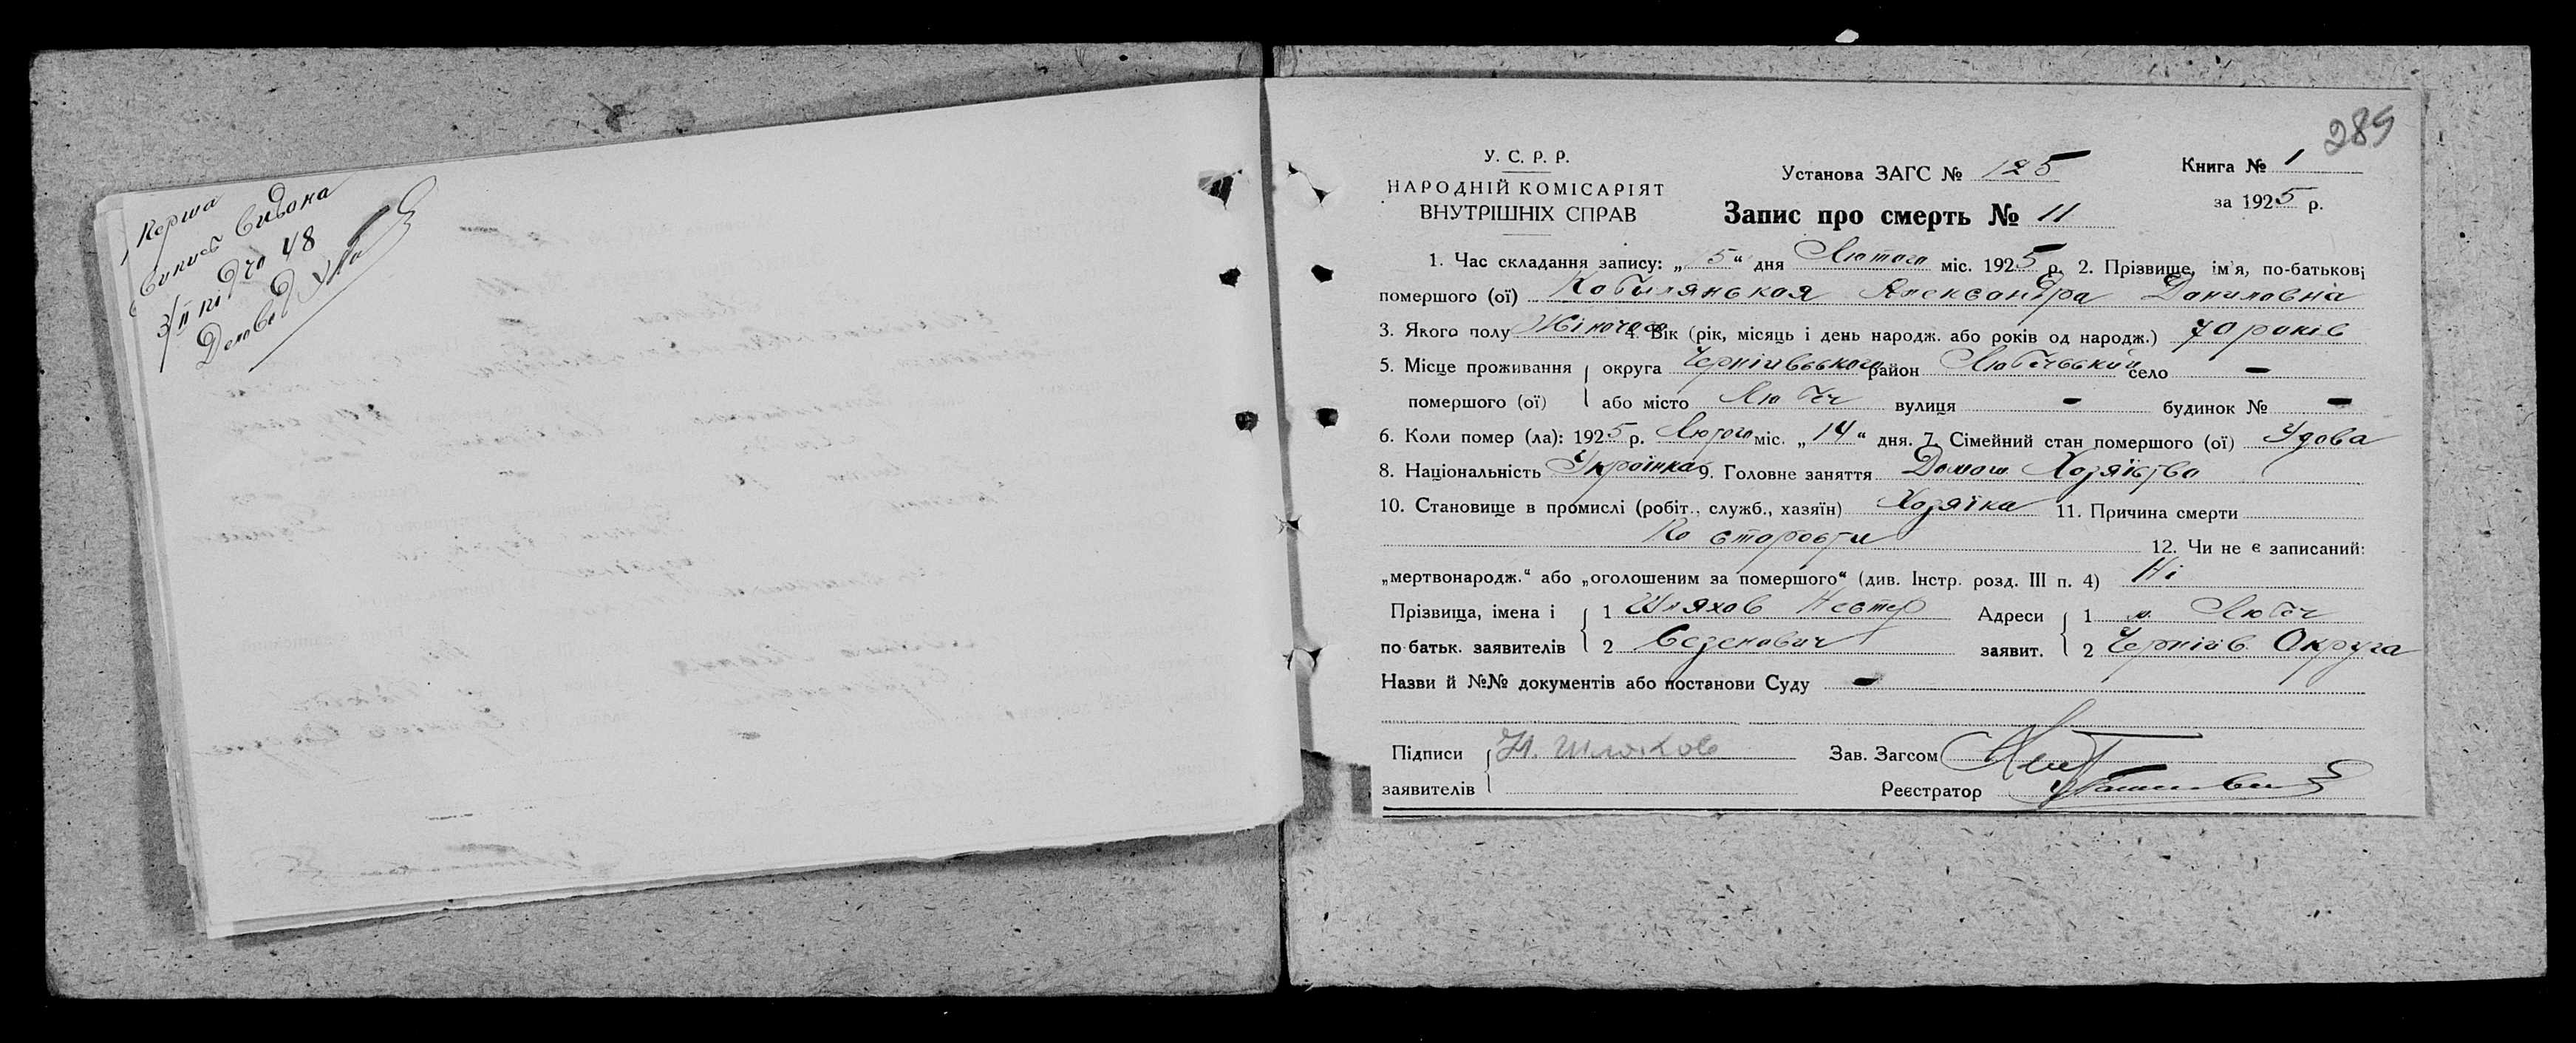 Перша
Випись видана
3/II під № 48
Діловод
289
У. С. Р. Р.
НАРОДНІЙ КОМІСАРІЯТ
ВНУТРІШНІХ СПРАВ
Установа ЗАГС № 125
Книга № 1
за 1925 р.
Запис про смерть № 11
1. Час складання запису: „15“ дня Лютого міс. 1925 р. 2. Прізвище, ім'я, по-батькові
помершого (ої) Кобилянькая Александра Даниловна
3. Якого полу Жіночого 4. Вік (рік, місяць і день народж. або років од народж.) 70 років
5. Місце проживання округа Чернігівського район Любечський село -
помершого (ої) або місто Любеч вулиця - будинок № -
6. Коли помер (ла): 1925 р. Лютого міс. „14“ дня. 7. Сімейний стан помершого (ої) Удова
8. Національність Українка 9. Головне заняття Домаш. Хозяйство
10. Становище в промислі (робіт., служб., хазяїн) Хозяїка 11. Причина смерти
По старости 12. Чи не є записаний:
„мертвонародж.“ або „оголошеним за помершого“ (див. Інстр. розд. III п. 4) Ні
Прізвища, імена і 1 Шляхов Нестер Адреси 1 м. Любеч
по-батьк. заявителів 2 заявит. 2 Чернігів. Округа
Назви й №№ документів або постанови Суду -
Підписи Н. Шляхов Зав. Загсом
заявителів Реєстратор